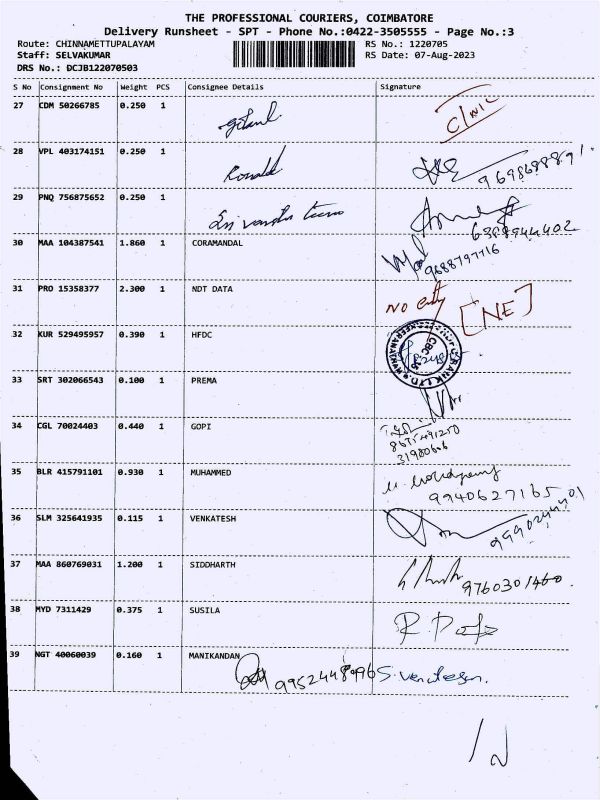 THE PROFESSIONAL COURIERS, COIMBATORE
Delivery Runsheet - SPT - Phone No.:0422-3505555 - Page No.:3
Route: CHINNAMETTUPALAYAM RS No.: 1220705
Staff: SELVAKUMAR RS Date: 07-Aug-2023
DRS No.: DCJB122070503
S No Consignment No Weight PCS Consignee Details Signature
27 CDM 50266785 0.250 1 CLINIC
28 VPL 403174151 0.250 1 Ronald
29 PNQ 756875652 0.250 1 Sri
30 MAA 104387541 1.860 1 CORAMANDAL 9688797716
31 PRO 15358377 2.300 1 NDT DATA NO entry [NE]
32 KUR 529495957 0.390 1 HFDC
33 SRT 302066543 0.100 1 PREMA
34 CGL 70024403 0.440 1 GOPI
35 BLR 415791101 0.930 1 MUHAMMED 9940627165
36 SLM 325641935 0.115 1 VENKATESH
37 MAA 860769031 1.200 1 SIDDHARTH 9760301460
38 MYD 7311429 0.375 1 SUSILA
39 NGT 40060039 0.160 1 MANIKANDAN 9952448996